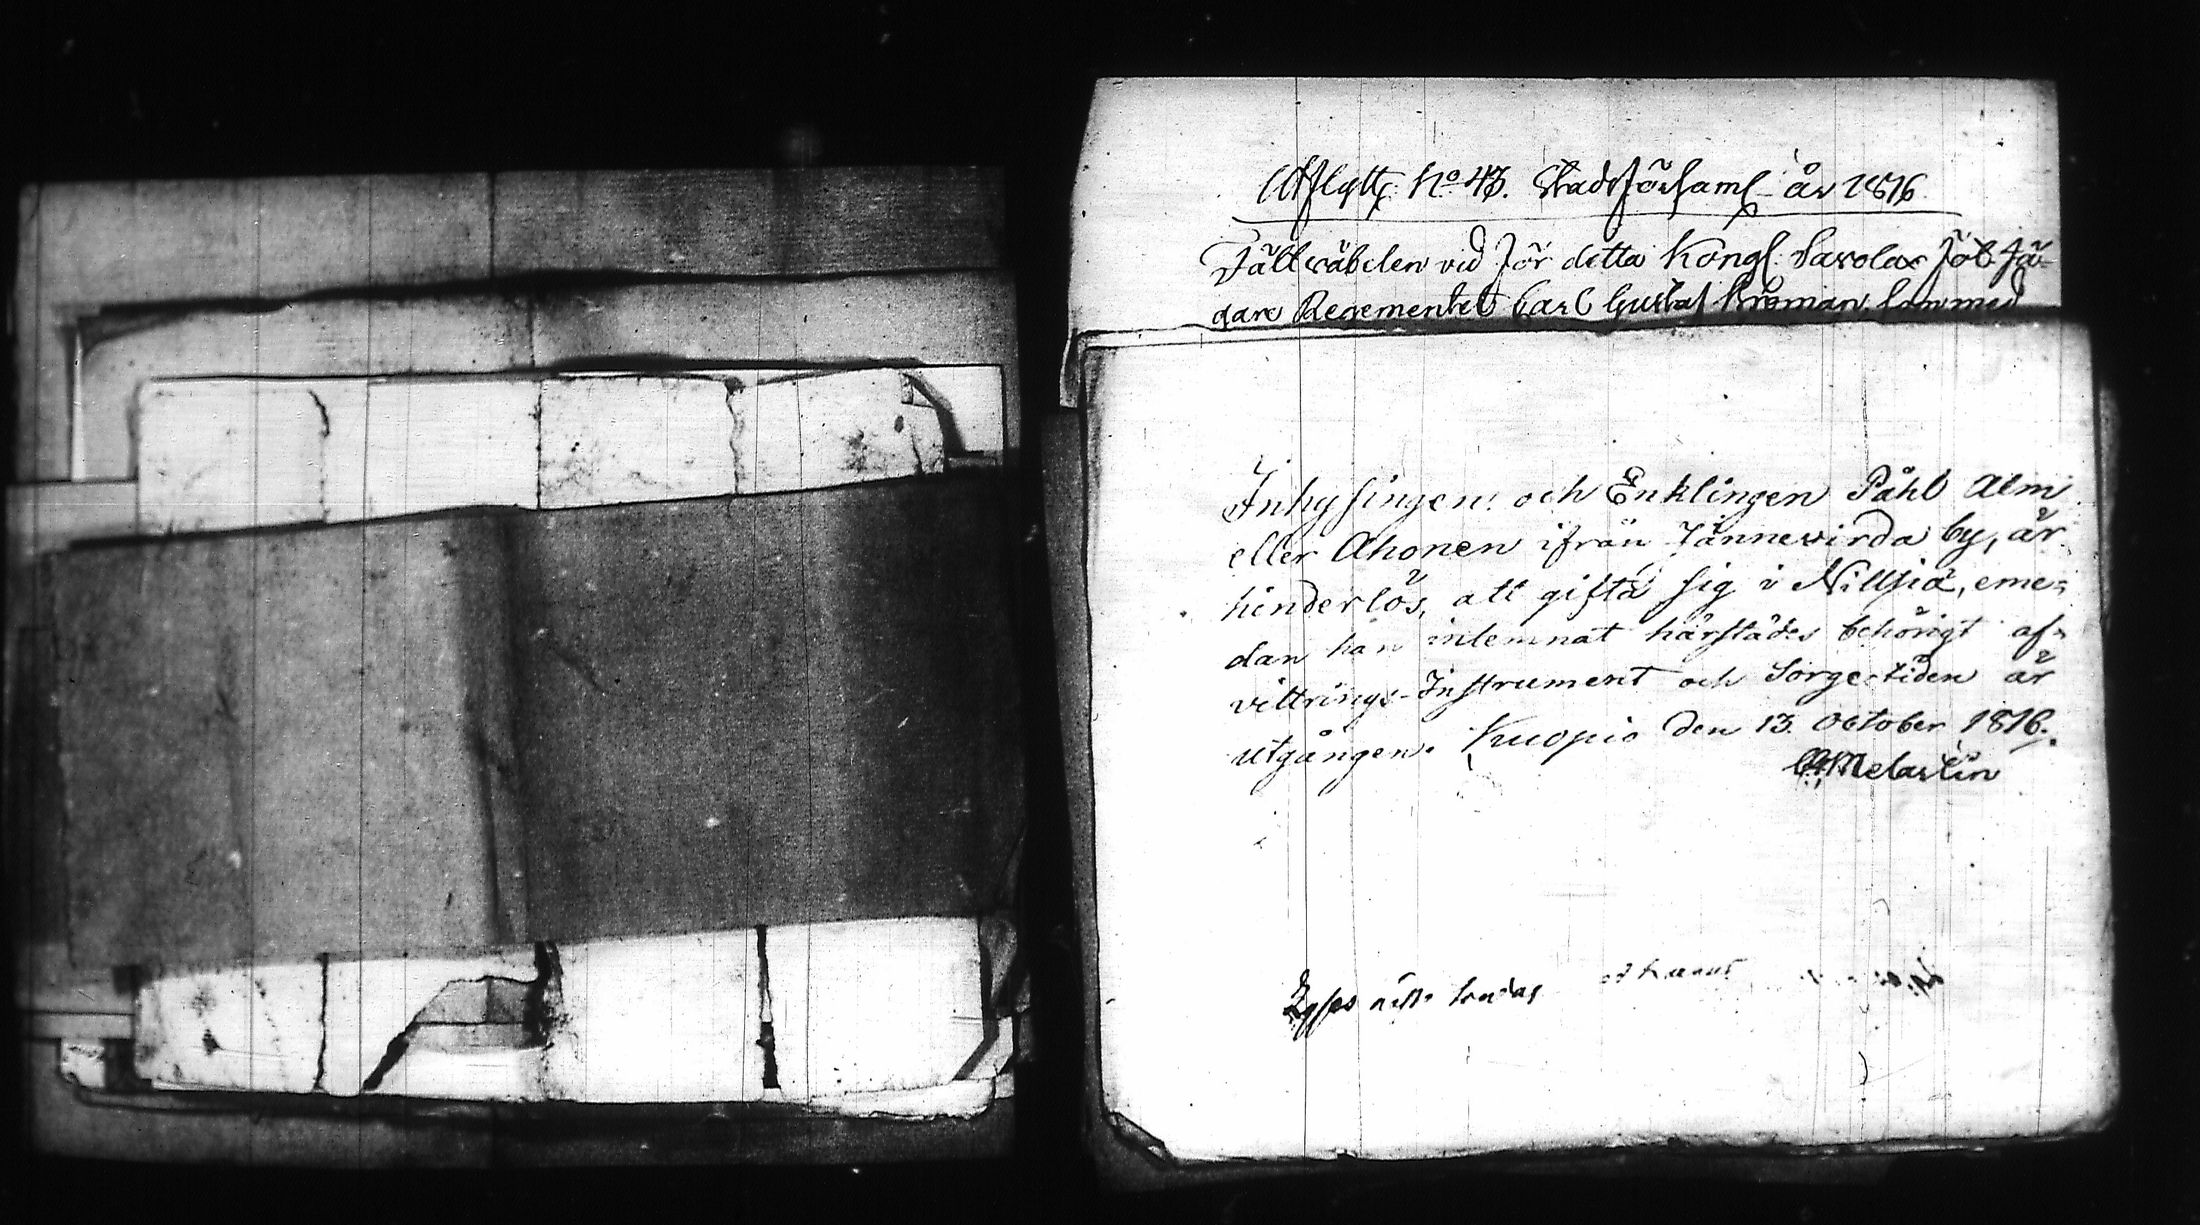 Utflyttz: No 43. Stadsförsaml. år 1816
Fältwäbelen vid för detta Kongl. Savolax fot Jä-
gare Regementet Carl Gustaf Kroman, som med
Inhysingen och Enklingen Påhl Alm
eller Ahonen ifrån Jännevirda by, är
hinderlös, att gifta sig i Nillsiä, eme=
dan han inlemnat härstädes behörigt af=
vittrings-Instrument och Sorge-tiden är
utgången. Kuopio den 13. October 1816.
Melartin